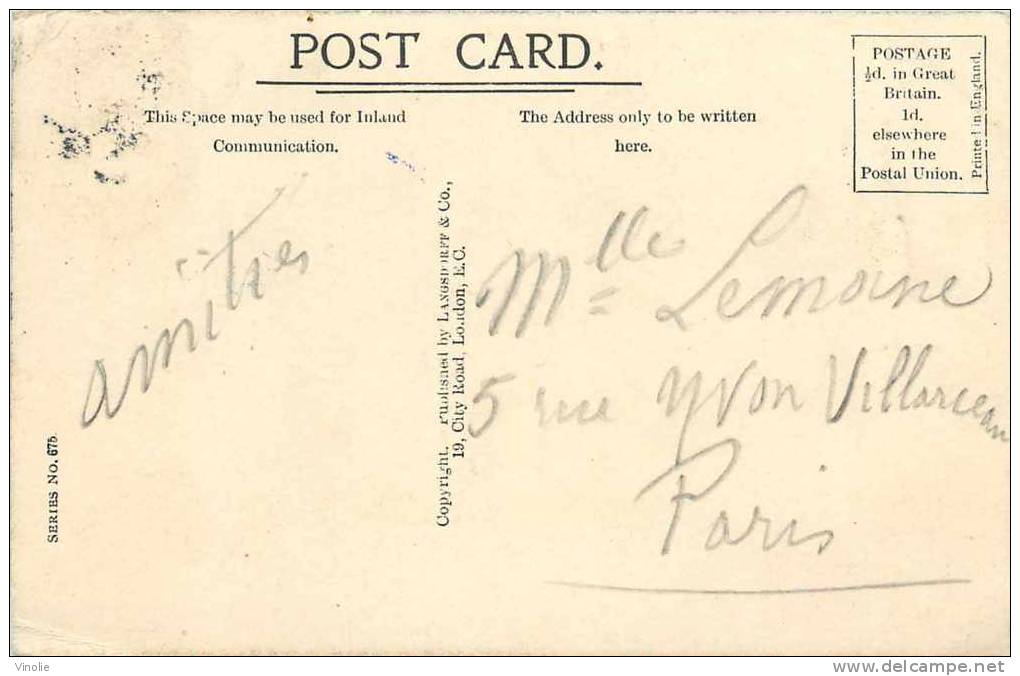 POST CARD.
This Space may be used for Inland
Communication.
The Address only to be written
here.
POSTAGE
½d. in Great
Britain.
1d.
elsewhere
in the
Postal Union.
Printed in England.
amitiés
Copyright. Published by LANGSDORFF & Co.,
19, City Road, London, E.C.
SERIES No. 675.
Mlle Lemoine
5 rue Yvon Villarceau
Paris
Vinolie
www.delcampe.net